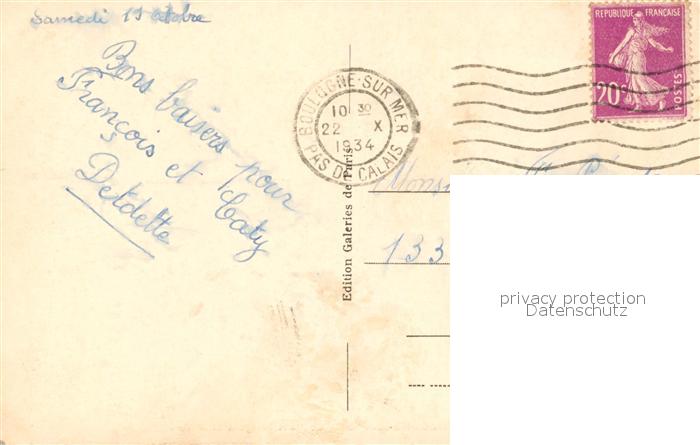 Samedi
Bons baisers pour
François et Caty
Dédette
BOULOGNE-SUR-MER
10 30
22 X
1934
PAS DE CALAIS
REPUBLIQUE FRANÇAISE
20c
POSTES
Edition Galeries de Paris
133
privacy protection
Datenschutz